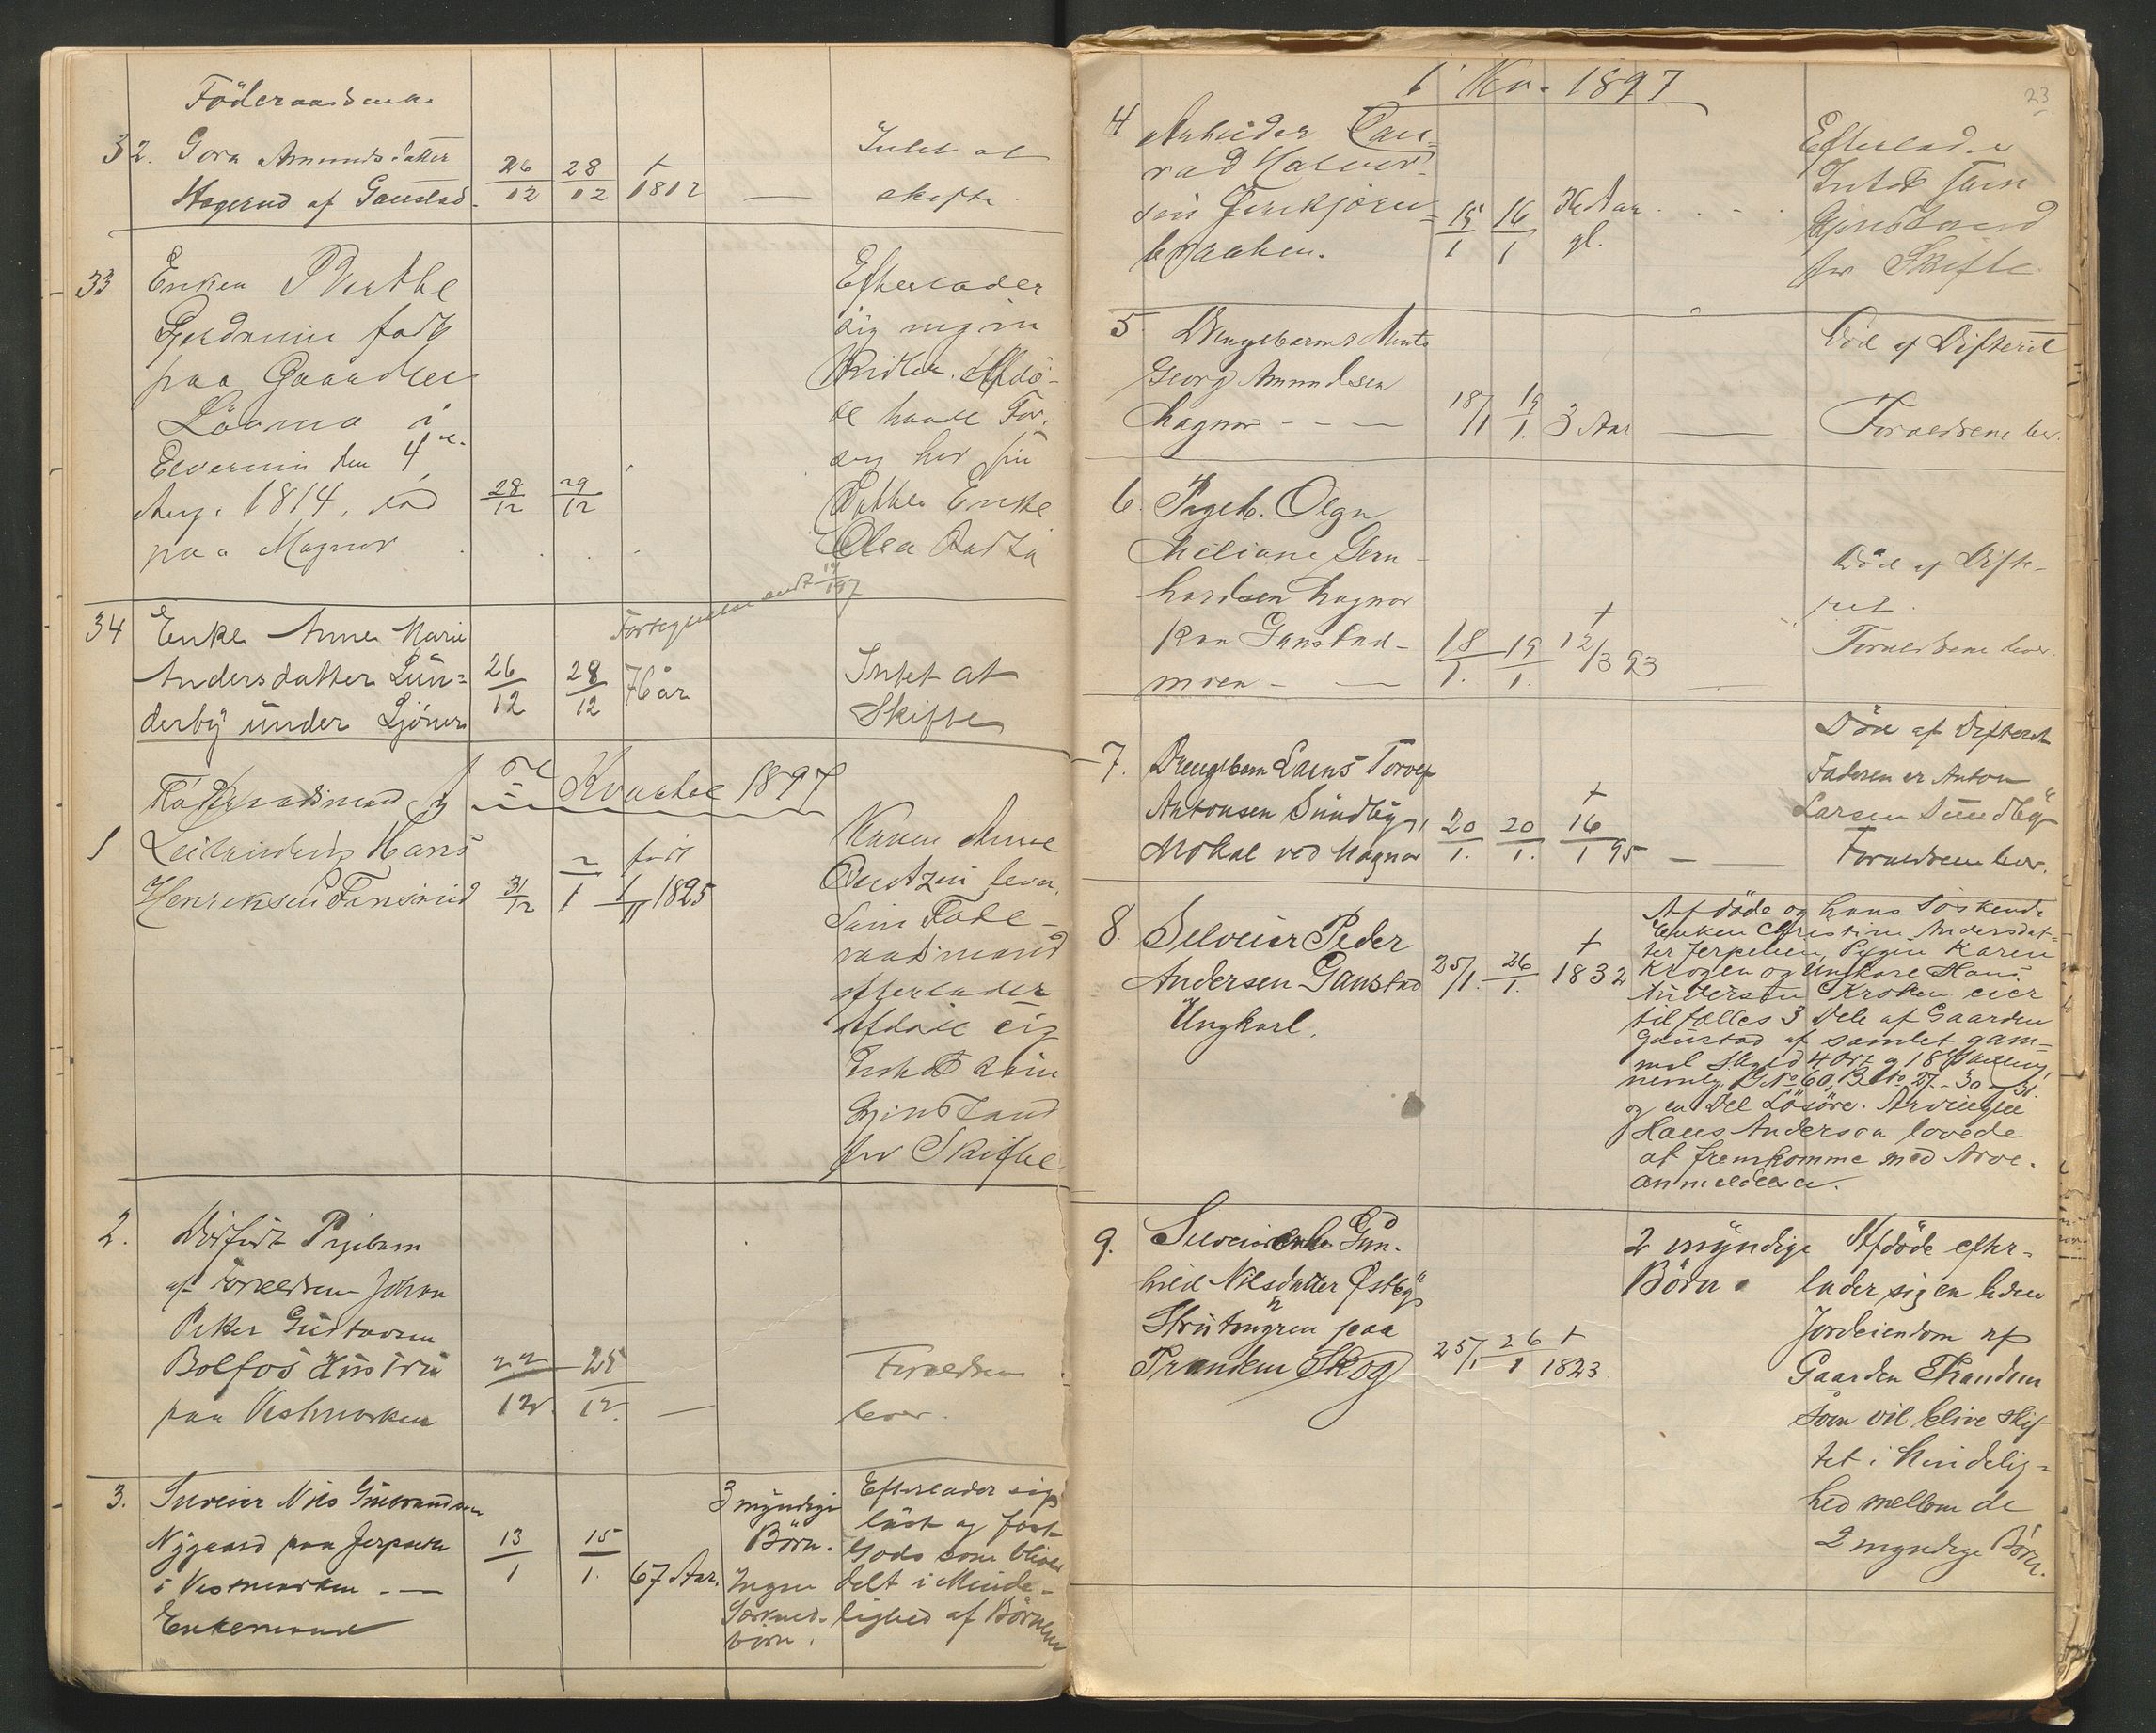 Föderaadsenke
32. Gora Amundsdatter
Hagerud af Gaustad. 26/12 28/12 † 1812 — Intet at skifte
33 Enken Berthe
født
paa Gaarden
i
Elverum den 4de
Aug. 1814, død 28/12 29/12
paa Magnor
Efterlader
sig ingen
Midler. Afdö-
de havde For-
sørg hos sin
Datter Enke
Olea
Fortegnelse sendt
34 Enke Anne Marie
Andersdatter Lün=
derby ünder Ljöner
26/12 28/12 76 år
Intet at
Skifte
1ste Kvartal 1897
Föderaadsmand
1 Leilendings Hans
Henriksen Finsrud 31/12 2/1 født 1/11 1825
Karen Anne
lever.
Som Føde-
raadsmand
efterlader
Afdøde sig
Intet som
Gjenstand
for Skifte
2. Dödfødt Pigebarn
af Forældrene Johan
Petter Gustavsen
Bolfos Hustru
paa Vestmarken 22/12 25/12 —
Forældrene
lever.
3. Selveier Nils Gulbrandsen
Nygaard paa
i Vestmarken — 13/1 15/1 67 Aar.
Enkemand
3 myndige
Börn.
Ingen
Særkuld-
börn.
Efterlader sig
löst og fast
Gods som bliver
delt i Minde-
lighed af Börnene
23
1 Kv. 1897
4 Arbeider Con=
rad Halvor-
sen
braaten. 15/1 16/1 Aar gl.
Efterlader
Intet som
Gjenstand
for Skifte
5 Drengebarnet
Georg Amundsen
Magnor - - — 18/1 19/1 3 Aar —
Död af Difterit
Forældrene lever.
6. Pigeb. Olga
Miliane Bern-
hardsen Magnor
paa Gaustad-
moen - — 18/1. 19/1. † 12/3 93 —
Död af Difte-
rit.
Forældrene lever.
7. Drengebarn Laens Torolf
Antonsen Sündby
Mokal ved Magnor 20/1. 20/1. † 16/1 95 — —
Död af Difterit
Faderen er Anton
Larsen Sündby
Forældrene lever.
8. Selveier Peder
Andersen Gaustad 25/1. 26/1. † 1832
Ungkarl.
Afdöde og hans Söskende
Enken Christine Andersdat=
ter Jerpelien, Pigen Karen
Krogen og Ungkare Hans
Andersen Kroken eier
til fælles 3 Dele af Gaarden
Gaustad af samlet gam=
mel Skyld 4 Ort og 18 Skilling,
nemlig G No 60, B No 27 - 30 og 31.
og en Del Lösöre. Arvingen
Hans Anderson lovede
at fremkomme med Arve-
anmeldelse.
9. Selveierenke Gun-
hild Nilsdatter Østby
paa
Trandem Skog 25/1 26/1 † 1823.
2 myndige
Börn.
Afdöde efter-
lader sig en liden
Jordeiendom af
Gaarden Trandem
som vil blive skif-
tet i Mindelig=
hed mellem de
2 myndige Börn.